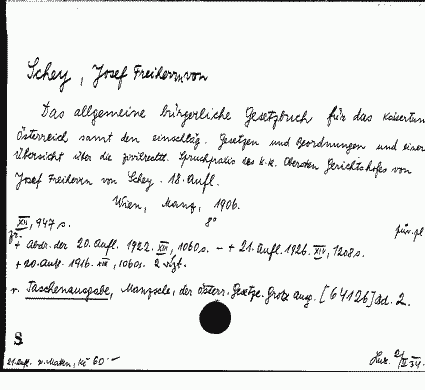 Schey, Josef Freiherr von
Das allgemeine bürgerliche Gesetzbuch für das Kaisertum
Österreich samt den einschläg. Gesetzen und Verordnungen und einer
Übersicht über die zivilrechtl. Spruchpraxis des k.k. Obersten Gerichtshofes von
Josef Freiherrn von Schey. 18. Aufl.
Wien, Manz, 1906.
XII, 947 s. 8°
+ Abdr. der 20. Aufl. 1922. XIII, 1060 s. - + 21. Aufl. 1926. XIV, 1208 s.
+ 20. Aufl. 1916. XIII, 1060 s.
v. Taschenausgabe, Manzsche, der österr. Gesetze. Grosz. ausg. [64126] Bd. 2.
S
21. Aufl. Kč 60.-